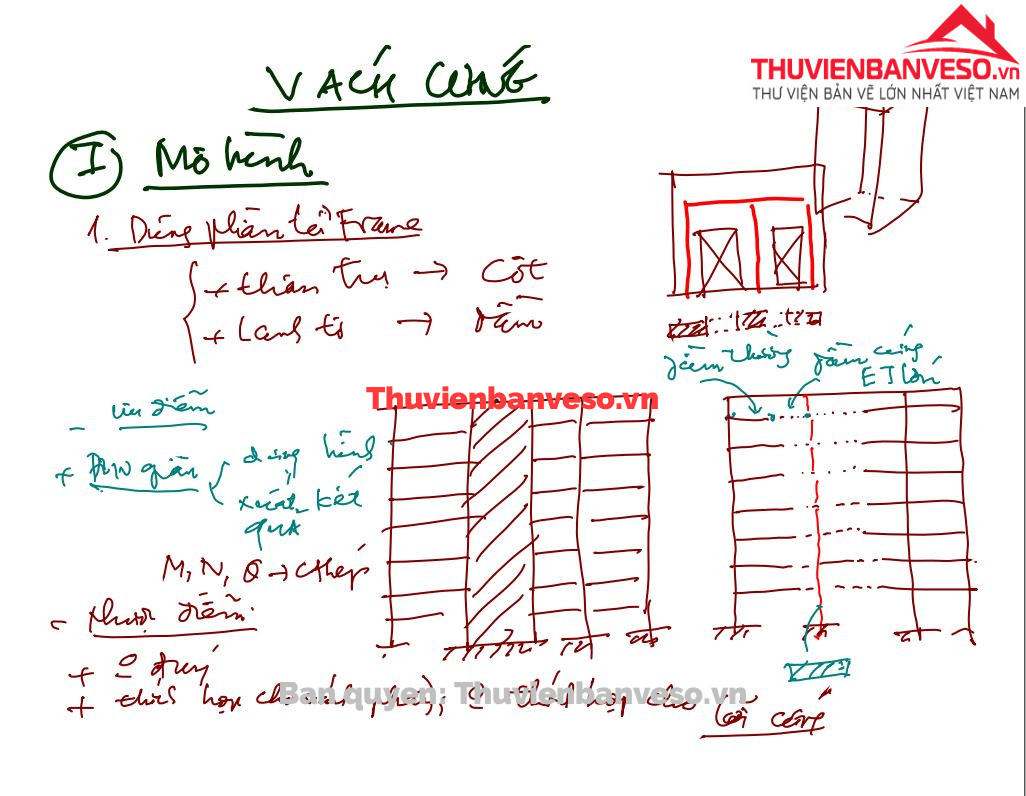 THUVIENBANVESO.vn
THƯ VIỆN BẢN VẼ LỚN NHẤT VIỆT NAM
VÁCH CỨNG
I Mô hình
1. Dùng phần tử Frame
+ thân trụ → Cột
+ Lanh tô → dầm
dầm thường
dầm cứng
EJ lớn
Thuvienbanveso.vn
- ưu điểm
+ Đơn giản
dựng hình
xuất kết
quả
M, N, Q → cthép
- Nhược điểm:
+
+ thích hợp cho
lõi cứng
Ban quyen: Thuvienbanveso.vn